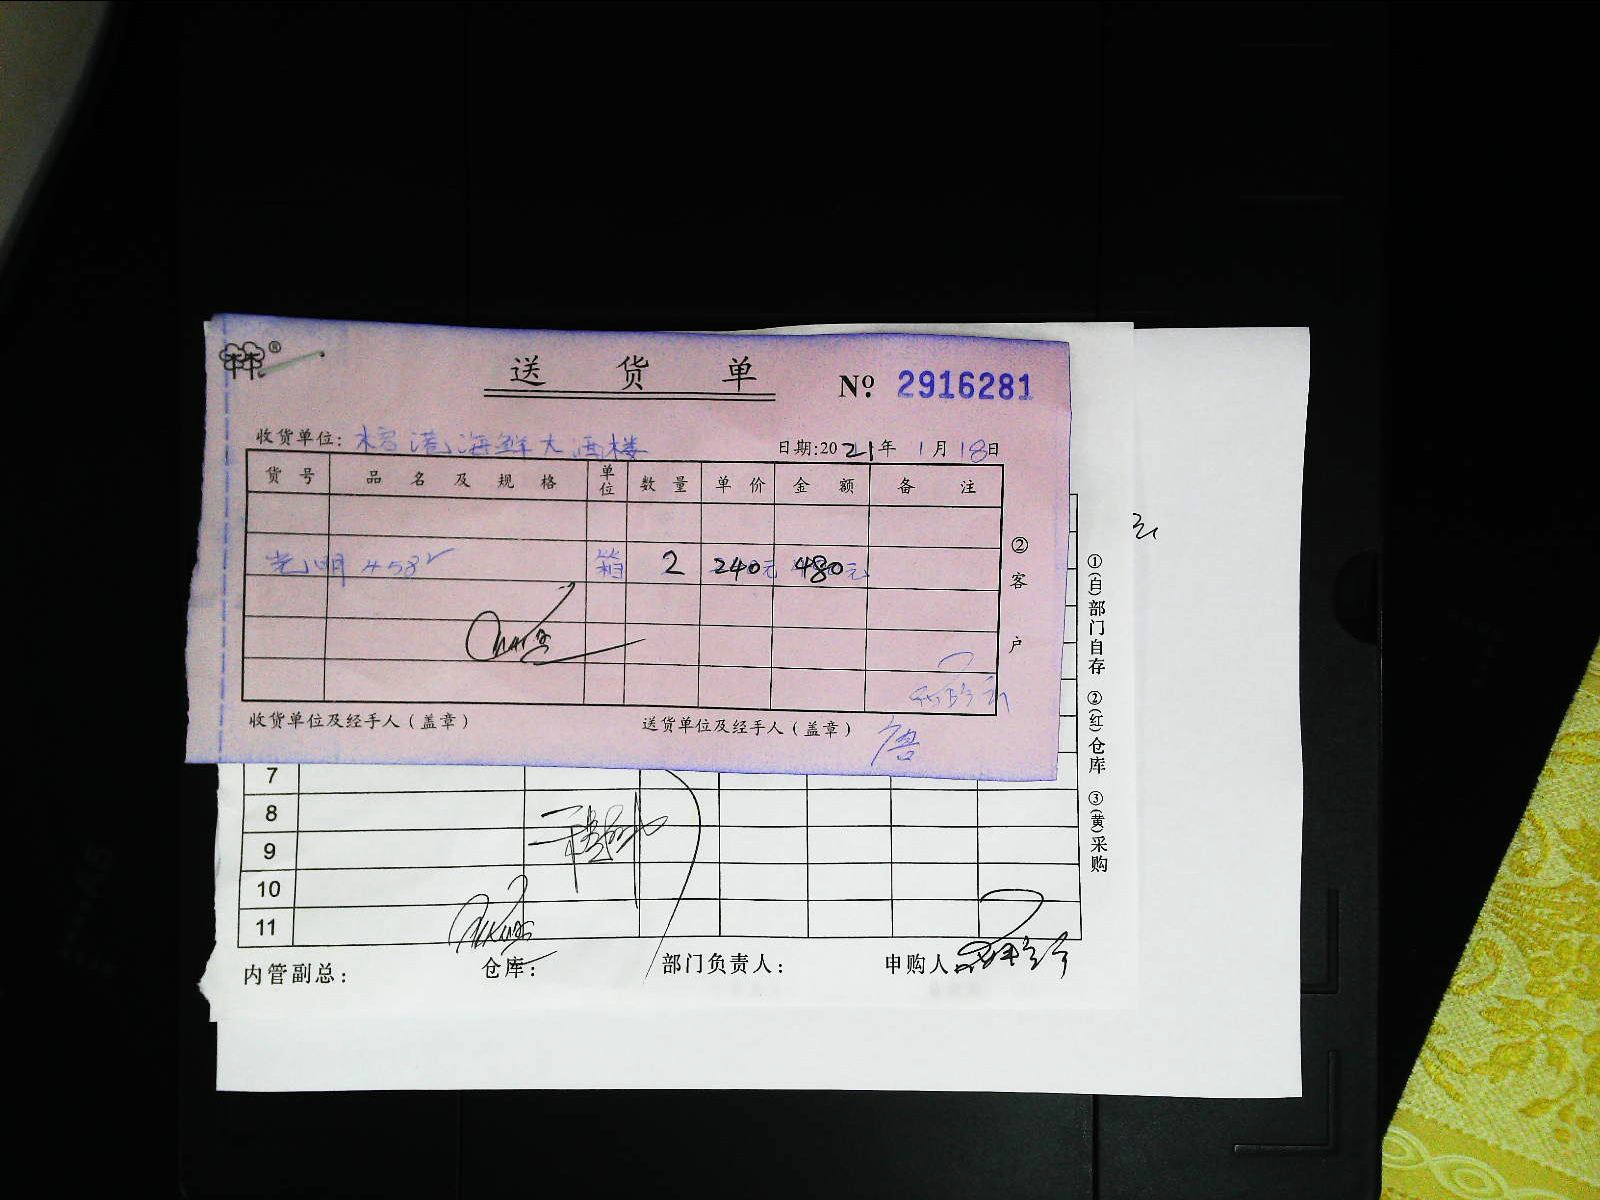 送货单
№ 2916281
收货单位: 榕港海鲜大酒楼 日期:2021年1月18日
货号 品名及规格 单位 数量 单价 金额 备注
光明 箱 2 240元 480元
②客户
收货单位及经手人(盖章) 送货单位及经手人(盖章)
唐
7
8
9
10
11
内管副总: 仓库: 部门负责人: 申购人:
①(白)部门自存 ②(红)仓库 ③(黄)采购